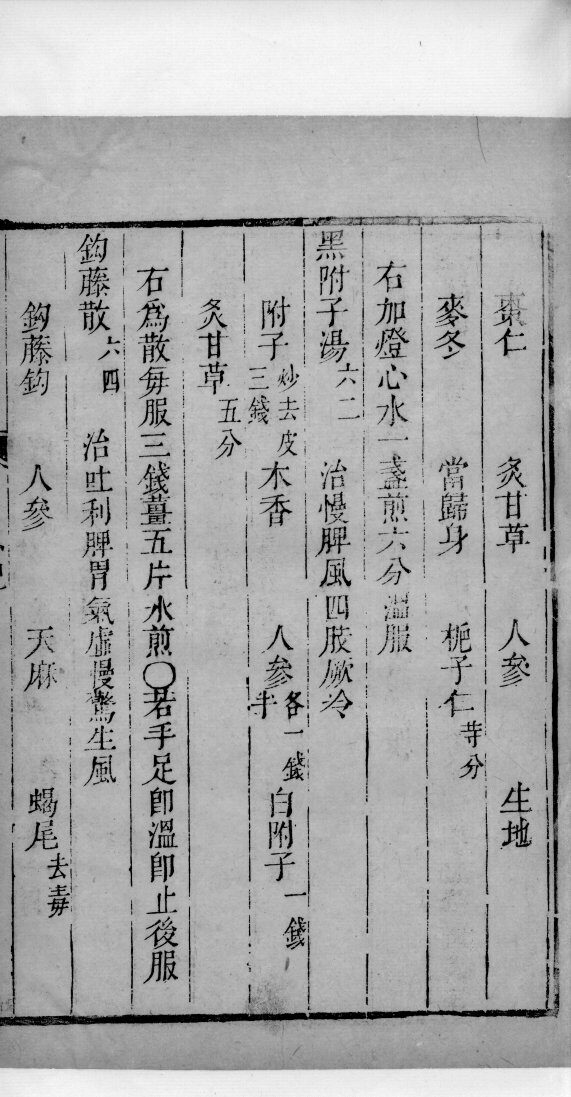 棗仁 炙甘草 人參 生地
麥冬 當歸身 梔子仁 等分
右加燈心水一盞煎六分溫服
黑附子湯 六二 治慢脾風四肢厥冷
附子 炒去皮三錢 木香 人參 各一錢半 白附子 一錢
炙甘草 五分
右爲散每服三錢薑五片水煎〇若手足卽溫卽止後服
鈎藤散 六四 治吐利脾胃氣虛慢驚生風
鈎藤鈎 人參 天麻 蝎尾 去毒